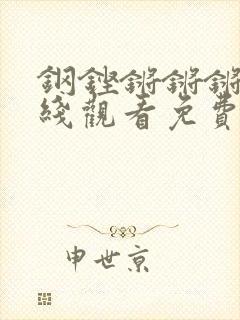 钢铿锵锵锵
线观看免费
申世京